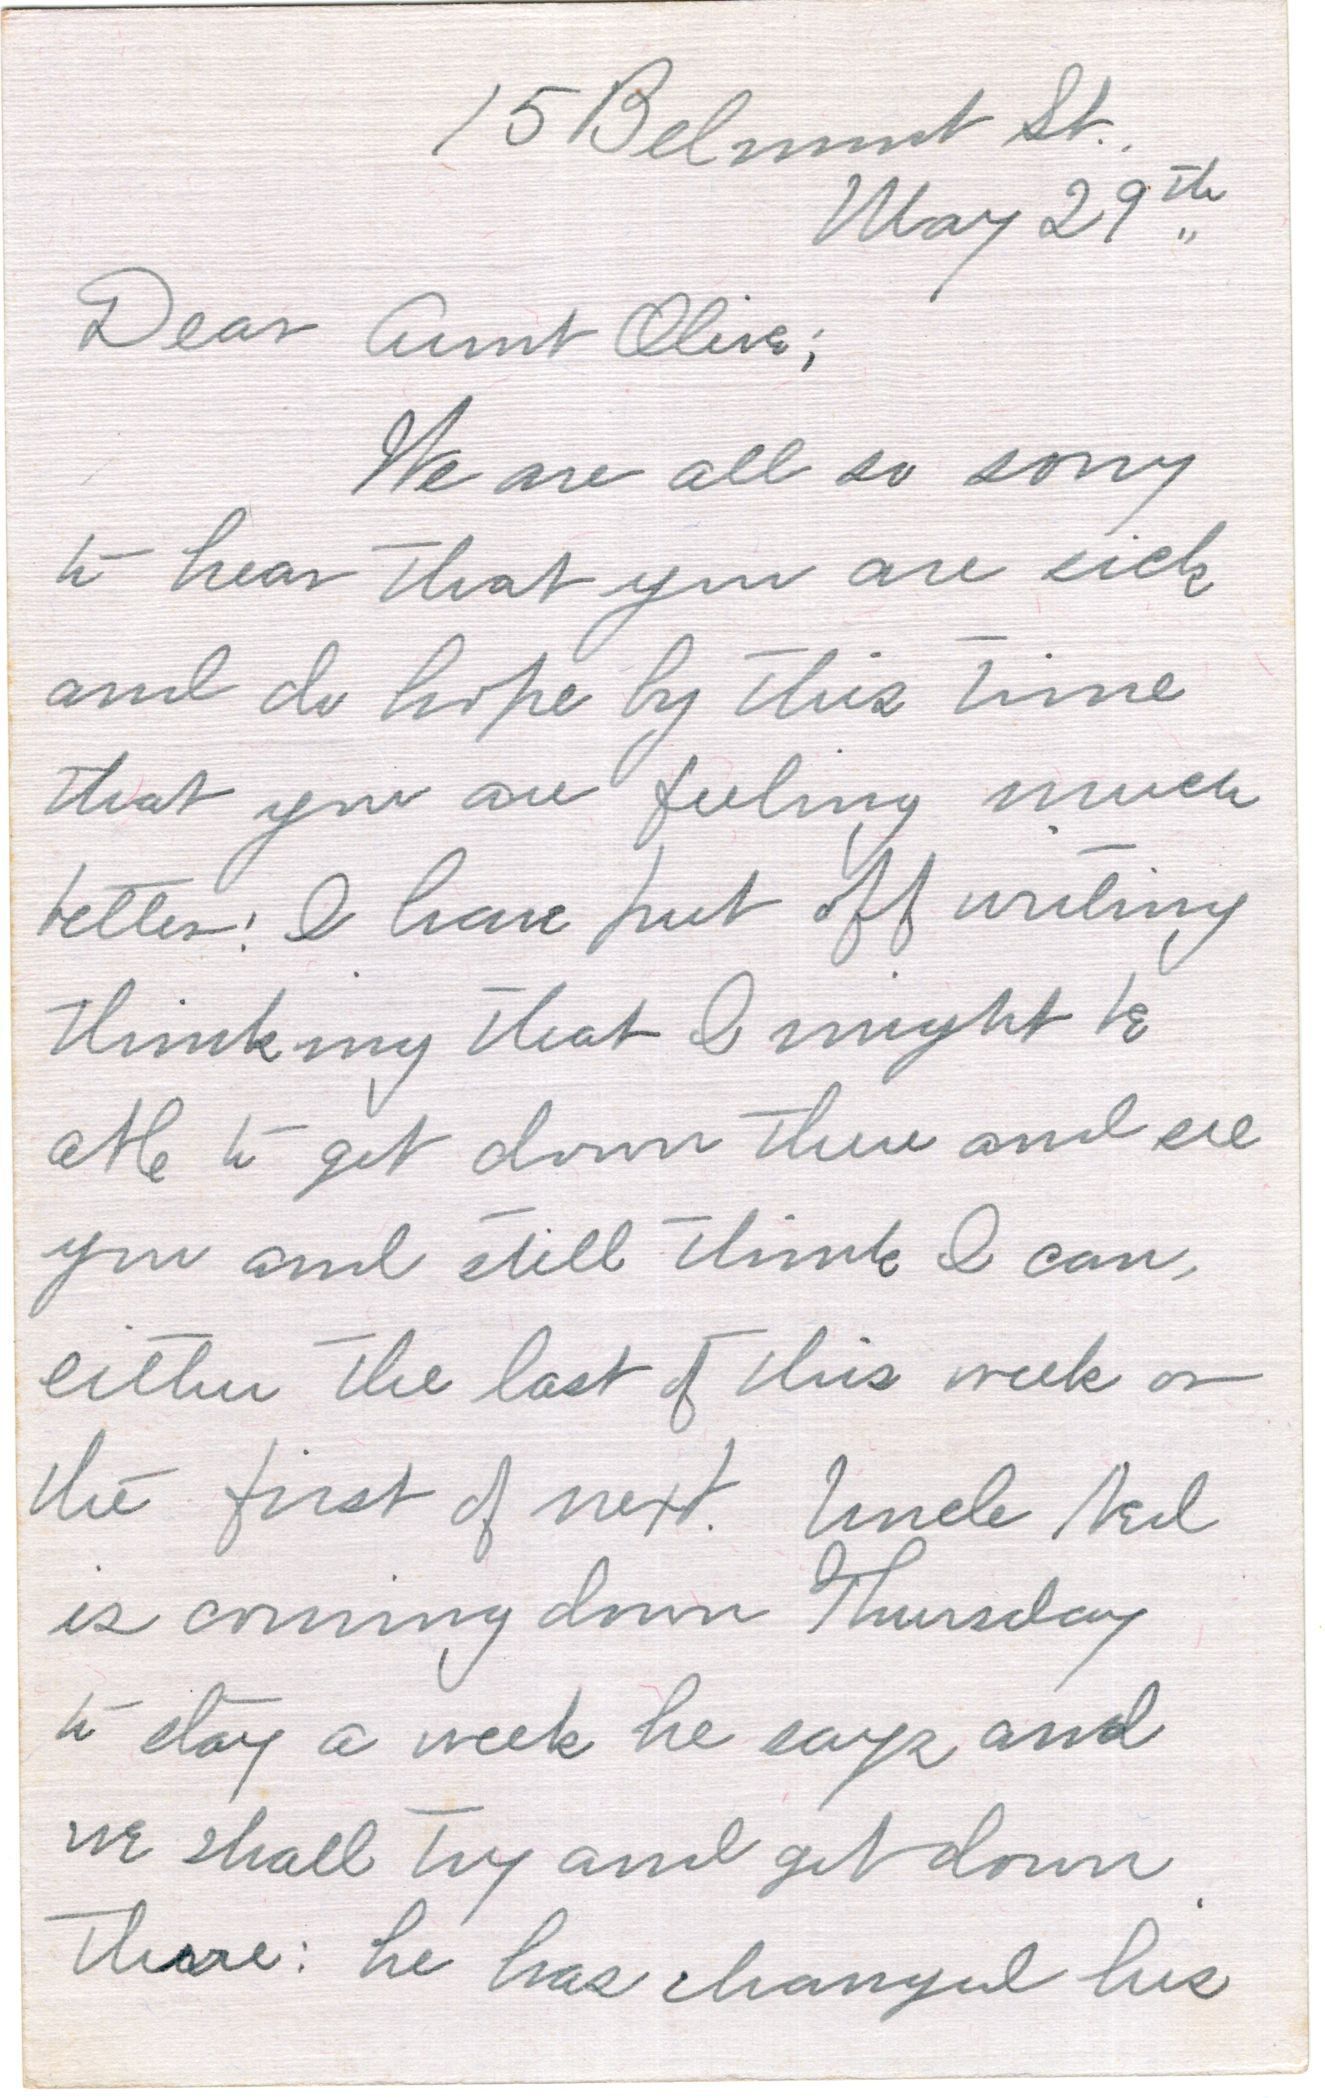 15 Belmont St.,
May 29th
Dear Aunt Olive;
We are all so sorry
to hear that you are sick
and do hope by this time
that you are feeling much
better! I have put off writing
thinking that I might be
able to get down there and see
you and still think I can,
either the last of this week or
the first of next. Uncle Ned
is coming down Thursday
to stay a week he says and
we shall try and get down
there: he has changed his